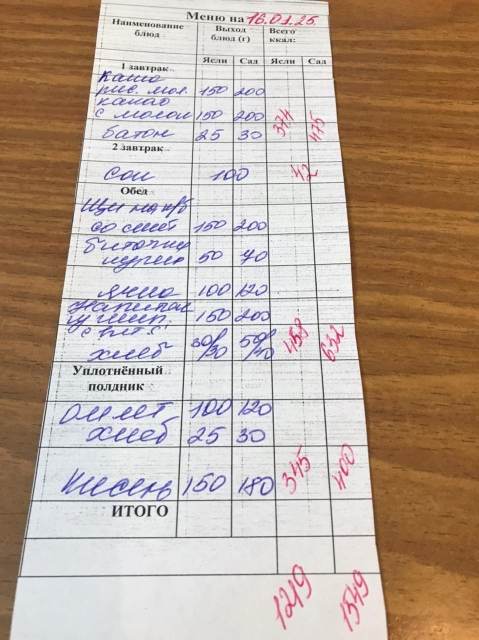 Меню на 16.01.25
Наименование блюд Выход блюд (г) Всего ккал:
Ясли Сад Ясли Сад
1 завтрак
Каша
рис. мол. 150 200
какао
с молоком 150 200 374 475
батон 25 30
2 завтрак
Сок 100 42
Обед
Щи на к/б
со смет 150 200
биточки
курин 50 70
ячна 100 120
Напиток
150 200
с вит. С
хлеб 458 632
Уплотнённый
полдник
Омлет 100 120
хлеб 25 30
Кисель 150 180 345 400
ИТОГО
1219 1549